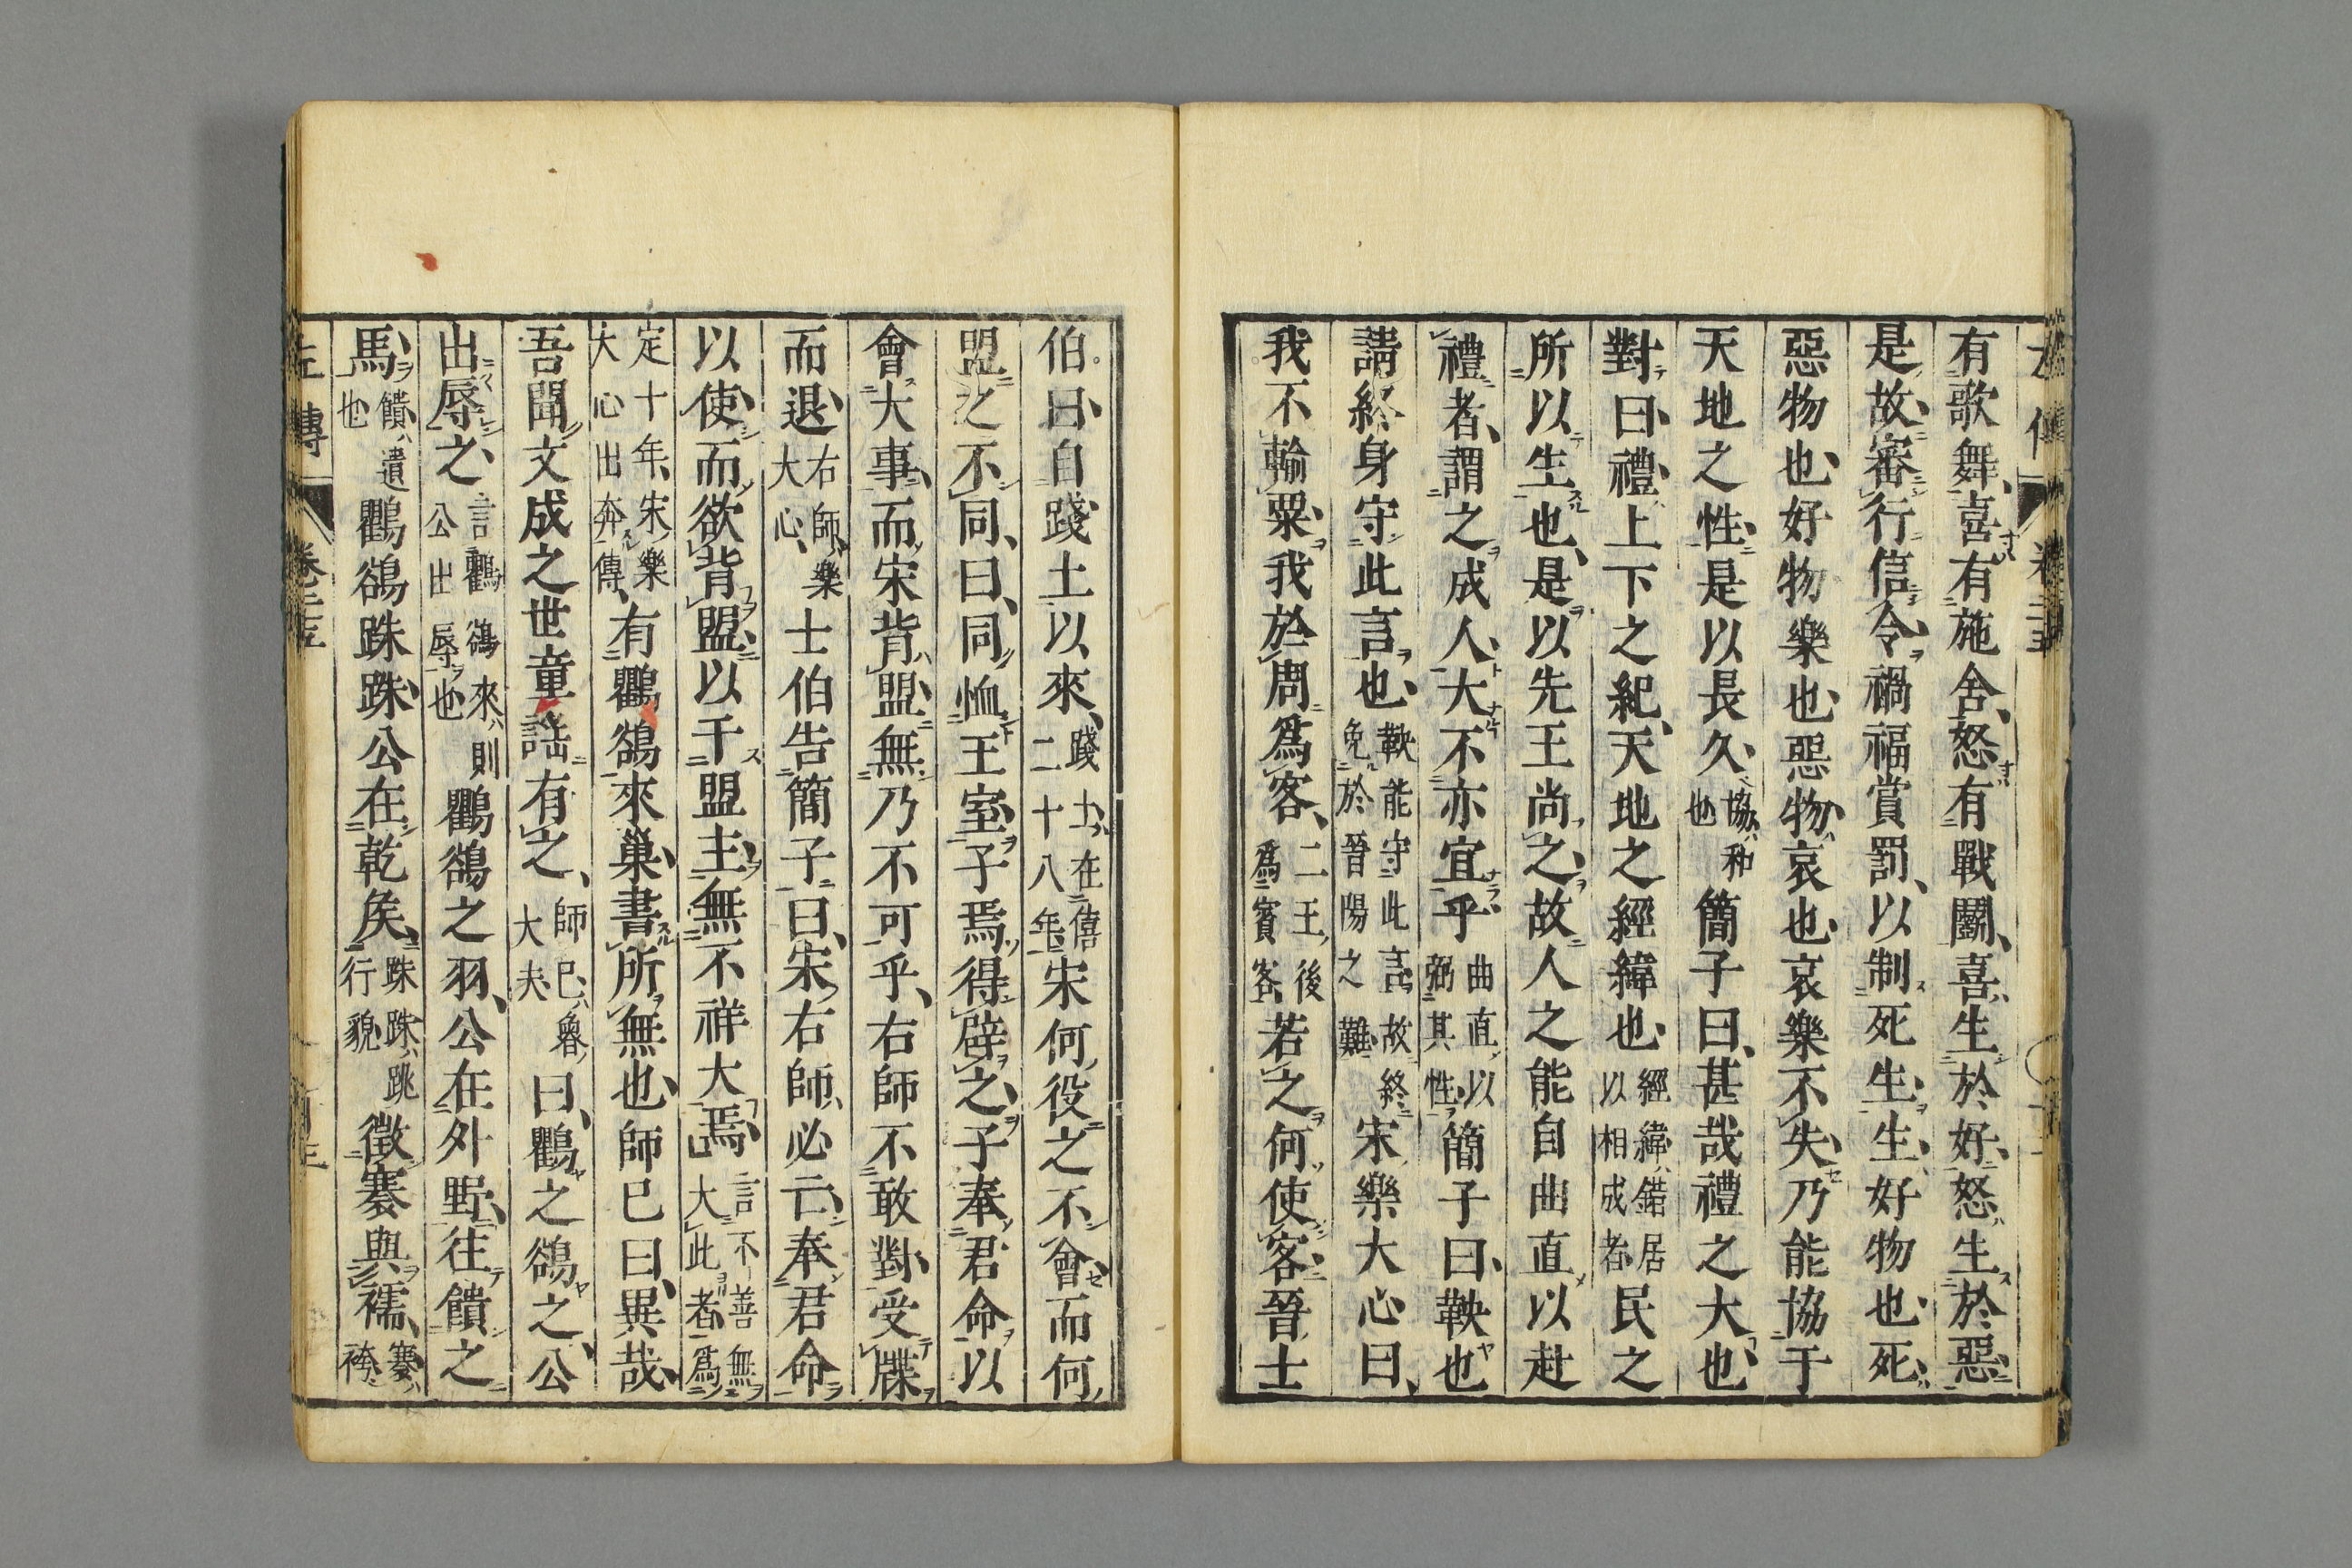 有歌舞、喜有施舍、怒有戰鬭、喜生於好、怒生於惡、
是故、審行信令、禍福賞罰、以制死生、生、好物也、死、
惡物也、好物樂也、惡物哀也、哀樂不失、乃能協于
天地之性、是以長久、協和也簡子曰、甚哉禮之大也、
對曰、禮、上下之紀、天地之經緯也、經緯錯居以相成者民之
所以生也、是以先王尚之、故人之能自曲直以赴
禮者、謂之成人、大不亦宜乎曲直以弼其性簡子曰、鞅也
請終身守此言也、鞅能守此言故終免於晉陽之難宋樂大心曰、
我不輸粟、我於周爲客、二王後爲賓客若之何使客、晉士
伯曰、自踐土以來、踐土在僖二十八年宋何役之不會、而何
盟之不同、曰、同恤王室、子焉得辟之、子奉君命以
會大事、而宋背盟、無乃不可乎、右師不敢對、受牒
而退、右師樂大心士伯告簡子曰、宋右師必亡、奉君命
以使、而欲背盟、以干盟主、無不祥大焉、言不善無大此者爲
定十年、宋樂大心出奔傳、有鸜鵒來巢、書所無也、師巳曰、異哉、
吾聞文成之世童謠有之、師巳魯大夫曰、鸜之鵒之、公
出辱之、言鸜鵒來則公出辱也鸜鵒之羽、公在外野、往饋之
馬、饋遺也鸜鵒跦跦、公在乾侯、跦跦跳行貌徵褰與襦、褰袴
左傳 卷二十五